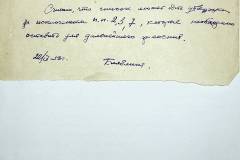 Считаю, что список может быть утвержден
за исключением п.п. 2, 3, 7, которые необходимо
оставить для дальнейшего хранения.